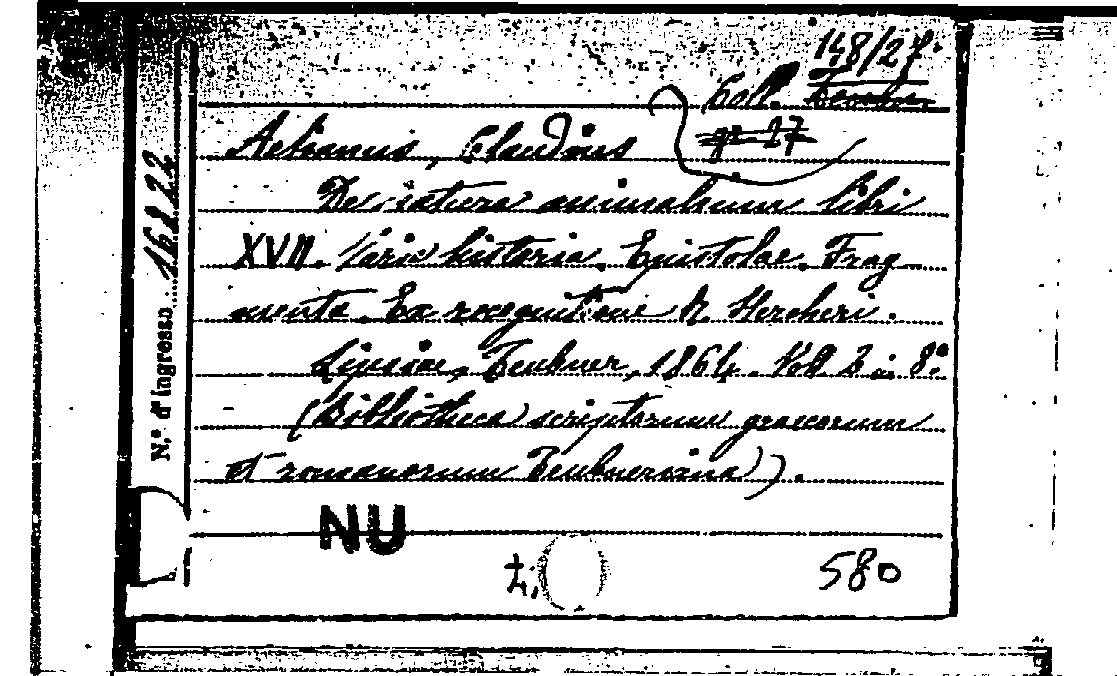 148/27.
Coll. Teubn.
gr. 27
Aelianus, Claudius
De natura animalium libri
XVII. Varia historia. Epistolae. Frag-
menta. Ex recognitione R. Hercheri.
Lipsiae, Teubner, 1864. Voll. 2 in 8.°
(Bibliotheca scriptorum graecorum
et romanorum Teubneriana)).
N.° d'ingresso 16822
NU
580